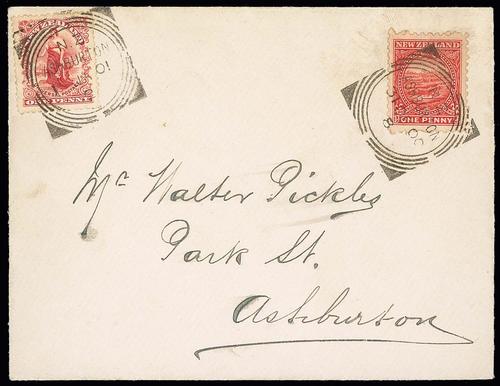 NEW ZEALAND
ONE PENNY
ASHBURTON
01
NEW ZEALAND
ONE PENNY
Mr Walter Pickles
Park St.
Ashburton